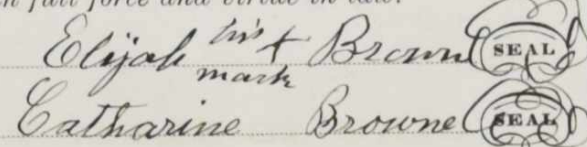 in full force and virtue in law.
Elijah his + Brown SEAL
mark
Catharine Browne SEAL